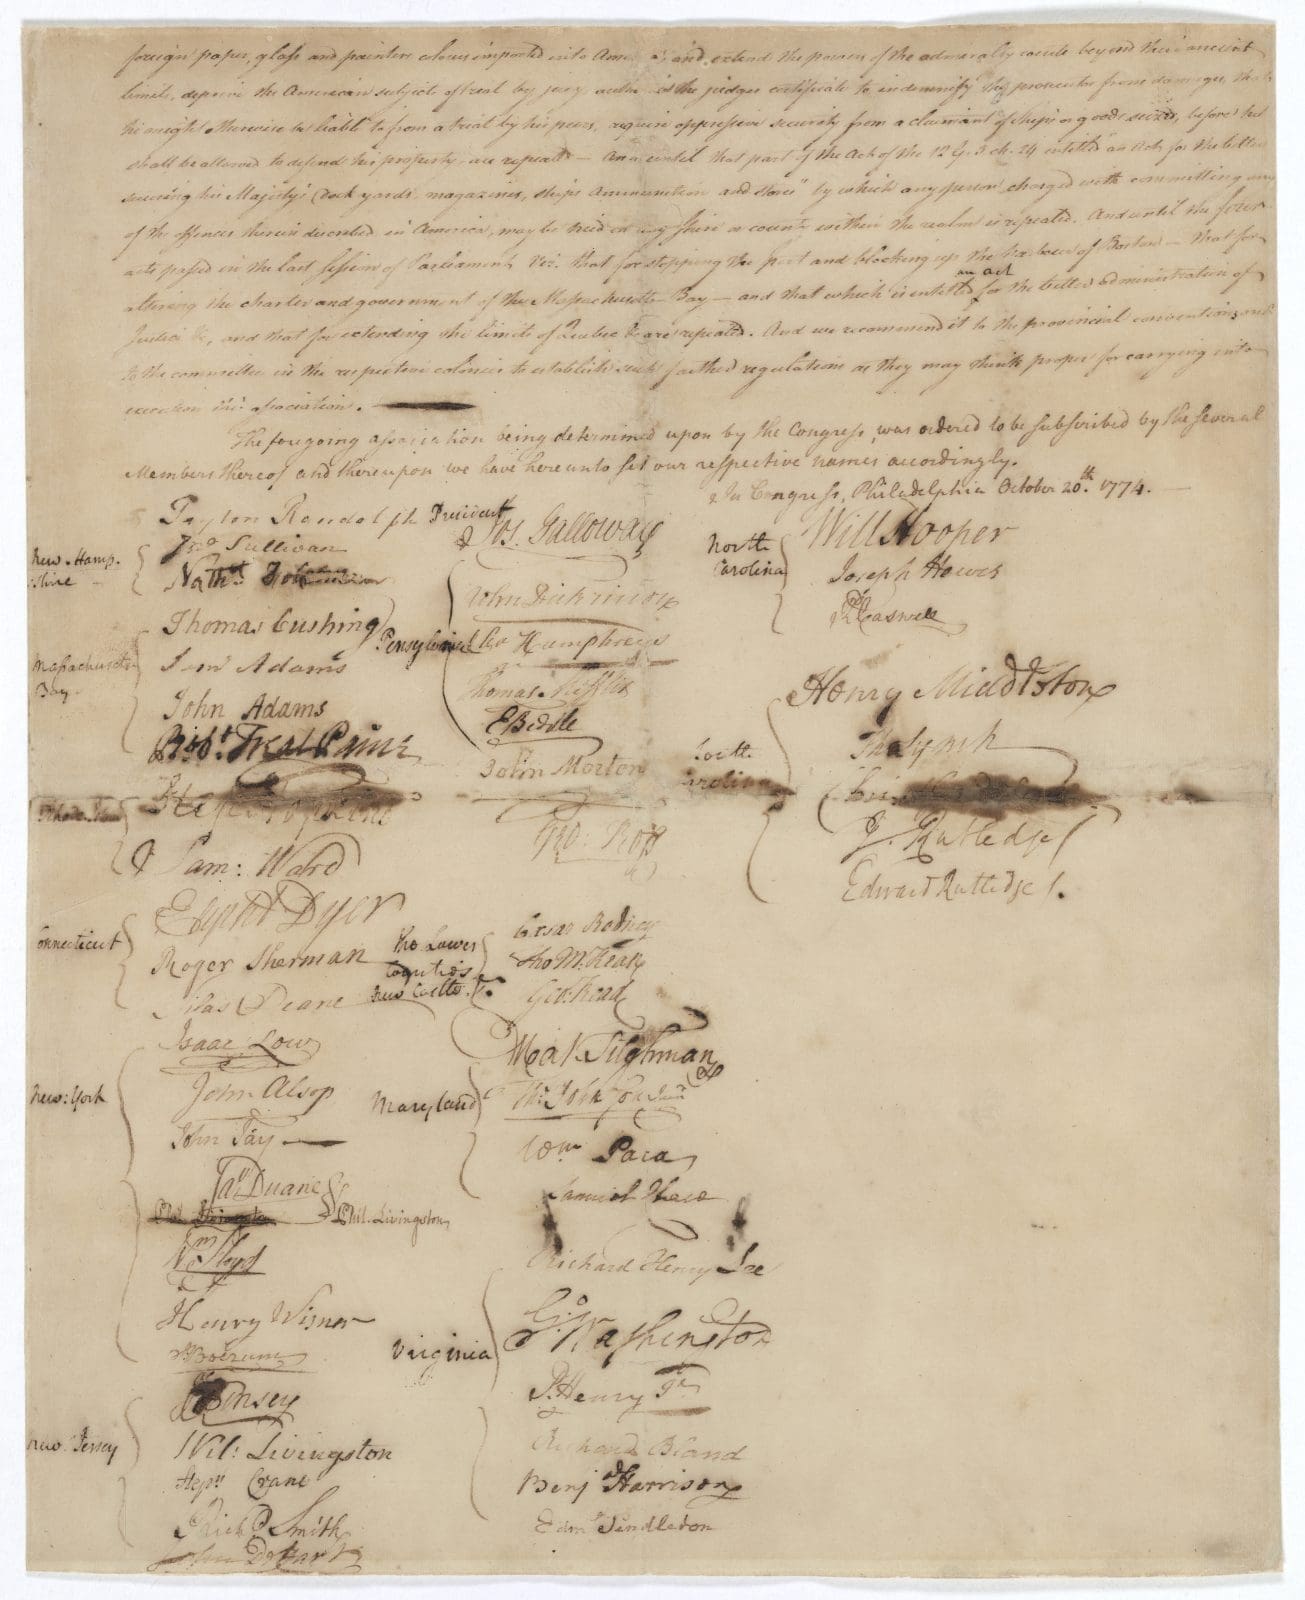 foreign paper, glass and painters colours imported into America, and extend the powers of the admiralty courts beyond their ancient
limits, deprive the American subject of trial by jury, authorize the judges certificate to indemnify the prosecutor from damages, that
he might otherwise be liable to from a trial by his peers, require oppressive security from a claimant of ships or goods seized, before he
shall be allowed to defend his property, are repealed — And until that part of the Act of the 12 G. 3 ch. 24 entitled "an Act for the better
securing his Majesty's Dock yards, magazines, ships ammunition and stores" by which any person charged with committing any
of the offences therein described in America, may be tried in any Shire or county within the realm is repealed. And until the four
acts passed in the last session of Parliament, viz. that for stopping the port and blocking up the harbour of Boston — that for
altering the charter and government of the Massachusetts Bay — and that which is entitled an act for the better administration of
Justice &c, and that for extending the limits of Quebec &c are repealed. And we recommend it to the provincial conventions and
to the committees in the respective colonies to establish such farther regulations as they may think proper for carrying into
execution this association.
The foregoing association being determined upon by the Congress, was ordered to be subscribed by the several
Members thereof and thereupon we have hereunto set our respective names accordingly.
In Congress, Philadelphia October 20th. 1774.
Peyton Randolph President
New Hamp-
shire
Jno Sullivan
Nathl. Folsom
Massachusetts
Bay
Thomas Cushing
Saml Adams
John Adams
Robt. Treat Paine
Rhode Island
Step Hopkins
Sam: Ward
Connecticut
Elipht Dyer
Roger Sherman
Silas Deane
New York
Isaac Low
John Alsop
John Jay
Jas Duane
Phil. Livingston
Wm Floyd
Henry Wisner
S Boerum
New Jersey
J Kinsey
Wil: Livingston
Stepn Crane
Richd Smith
John De Hart
Pensylvania
Jos. Galloway
John Dickinson
Cha Humphreys
Thomas Mifflin
E Biddle
John Morton
Geo: Ross
The Lower
Counties
New Castle
Cesar Rodney
Tho M: Kean
Geo: Read
Maryland
Mat Tilghman
Ths. Johnson Junr
Wm Paca
Samuel Chase
Virginia
Richard Henry Lee
Go. Washington
P. Henry Jr
Richard Bland
Benj Harrison
Edmd Pendleton
North
Carolina
Will Hooper
Joseph Hewes
Rd Caswell
South
Carolina
Henry Middleton
Tho Lynch
Chris Gadsden
J. Rutledge
Edward Rutledge